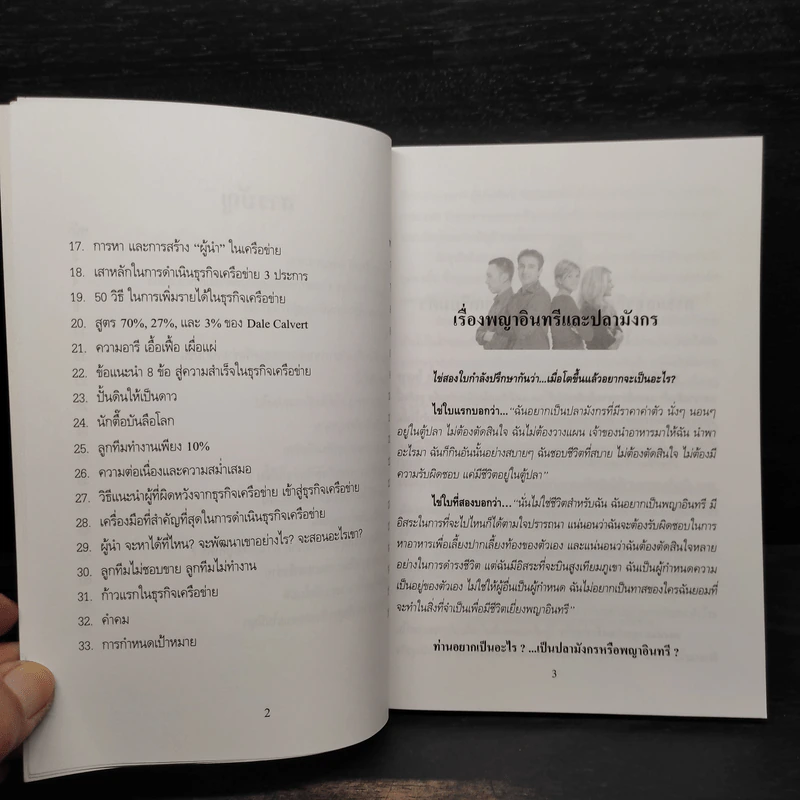 17. การหา และการสร้าง “ผู้นำ” ในเครือข่าย
18. เสาหลักในการดำเนินธุรกิจเครือข่าย 3 ประการ
19. 50 วิธี ในการเพิ่มรายได้ในธุรกิจเครือข่าย
20. สูตร 70%, 27%, และ 3% ของ Dale Calvert
21. ความอารี เอื้อเฟื้อ เผื่อแผ่
22. ข้อแนะนำ 8 ข้อ สู่ความสำเร็จในธุรกิจเครือข่าย
23. ปั้นดินให้เป็นดาว
24. นักตื๊อบันลือโลก
25. ลูกทีมทำงานเพียง 10%
26. ความต่อเนื่องและความสม่ำเสมอ
27. วิธีแนะนำผู้ที่ผิดหวังจากธุรกิจเครือข่าย เข้าสู่ธุรกิจเครือข่าย
28. เครื่องมือที่สำคัญที่สุดในการดำเนินธุรกิจเครือข่าย
29. ผู้นำ จะหาได้ที่ไหน? จะพัฒนาเขาอย่างไร? จะสอนอะไรเขา?
30. ลูกทีมไม่ชอบขาย ลูกทีมไม่ทำงาน
31. ก้าวแรกในธุรกิจเครือข่าย
32. คำคม
33. การกำหนดเป้าหมาย
2
เรื่องพญาอินทรีและปลามังกร
ไข่สองใบกำลังปรึกษากันว่า...เมื่อโตขึ้นแล้วอยากจะเป็นอะไร?
ไข่ใบแรกบอกว่า... “ฉันอยากเป็นปลามังกรที่มีราคาค่าตัว นั่งๆ นอนๆ
อยู่ในตู้ปลา ไม่ต้องตัดสินใจ ฉันไม่ต้องวางแผน เจ้าของนำอาหารมาให้ฉัน นำพา
อะไรมา ฉันก็กินอันนั้นอย่างสบายๆ ฉันชอบชีวิตที่สบาย ไม่ต้องตัดสินใจ ไม่ต้องมี
ความรับผิดชอบ แค่มีชีวิตอยู่ในตู้ปลา”
ไข่ใบที่สองบอกว่า... “นั่นไม่ใช่ชีวิตสำหรับฉัน ฉันอยากเป็นพญาอินทรี มี
อิสระในการที่จะไปไหนก็ได้ตามใจปรารถนา แน่นอนว่าฉันจะต้องรับผิดชอบในการ
หาอาหารเพื่อเลี้ยงปากเลี้ยงท้องของตัวเอง และแน่นอนว่าฉันต้องตัดสินใจหลาย
อย่างในการดำรงชีวิต แต่ฉันมีอิสระที่จะบินสูงเทียมภูเขา ฉันเป็นผู้กำหนดความ
เป็นอยู่ของตัวเอง ไม่ใช่ให้ผู้อื่นเป็นผู้กำหนด ฉันไม่อยากเป็นทาสของใครฉันยอมที่
จะทำในสิ่งที่จำเป็นเพื่อมีชีวิตเยี่ยงพญาอินทรี”
ท่านอยากเป็นอะไร ? ...เป็นปลามังกรหรือพญาอินทรี ?
3